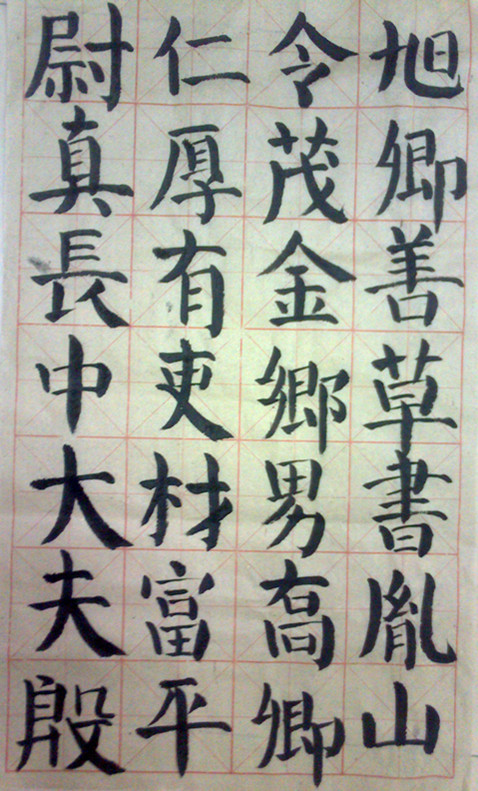 旭卿善草書胤山
令茂金鄉男喬卿
仁厚有吏材富平
尉真長中大夫殷